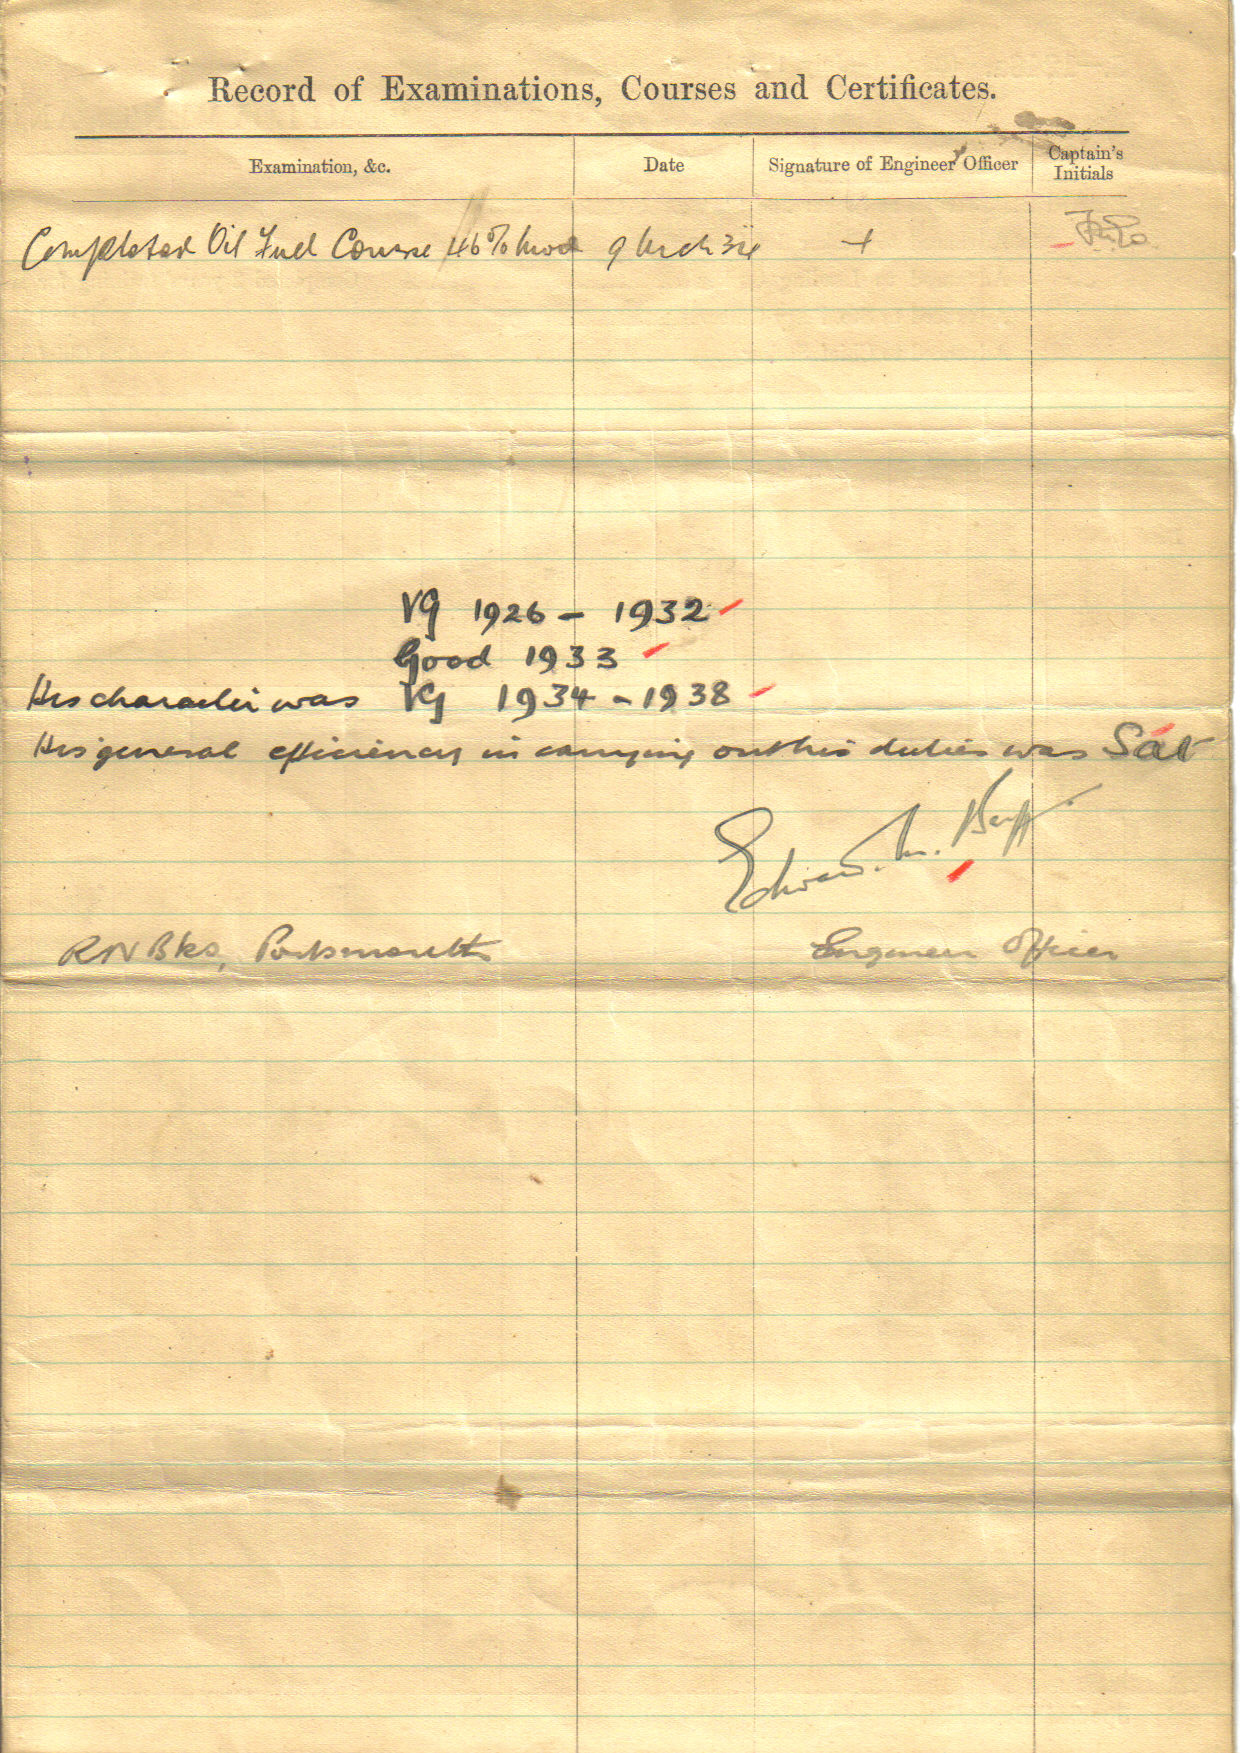 Record of Examinations, Courses and Certificates.
Examination, &c. Date Signature of Engineer Officer Captain's Initials
Completed Oil Fuel Course 46%
VG 1926 - 1932
Good 1933
His character was VG 1934 - 1938
His general efficiency in carrying out his duties was Sat
Edward. M.
RN Bks, Portsmouth Engineer Officer